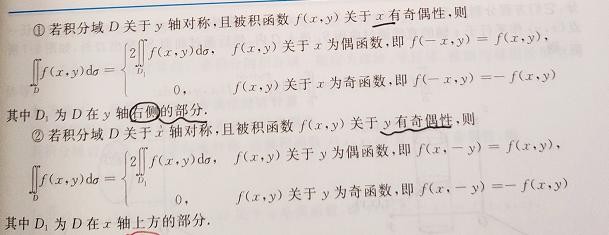 ① 若积分域 D 关于 y 轴对称,且被积函数 f(x,y) 关于 x 有奇偶性,则
∬_D f(x,y)dσ = { 2∬_{D₁} f(x,y)dσ, f(x,y) 关于 x 为偶函数,即 f(−x,y) = f(x,y),
0, f(x,y) 关于 x 为奇函数,即 f(−x,y) =− f(x,y)
其中 D₁ 为 D 在 y 轴右侧的部分.
② 若积分域 D 关于 x 轴对称,且被积函数 f(x,y) 关于 y 有奇偶性,则
∬_D f(x,y)dσ = { 2∬_{D₁} f(x,y)dσ, f(x,y) 关于 y 为偶函数,即 f(x,−y) = f(x,y),
0, f(x,y) 关于 y 为奇函数,即 f(x,−y) =− f(x,y)
其中 D₁ 为 D 在 x 轴上方的部分.